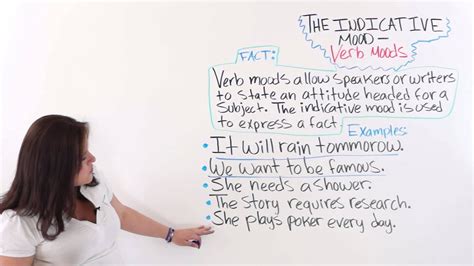 THE INDICATIVE
MOOD —
Verb Moods
FACT:
Verb moods allow speakers or writers
to state an attitude headed for a
subject. The indicative mood is used
to express a fact.
Examples:
• It will rain tommorow.
• We want to be famous.
• She needs a shower.
• The story requires research.
• She plays poker every day.